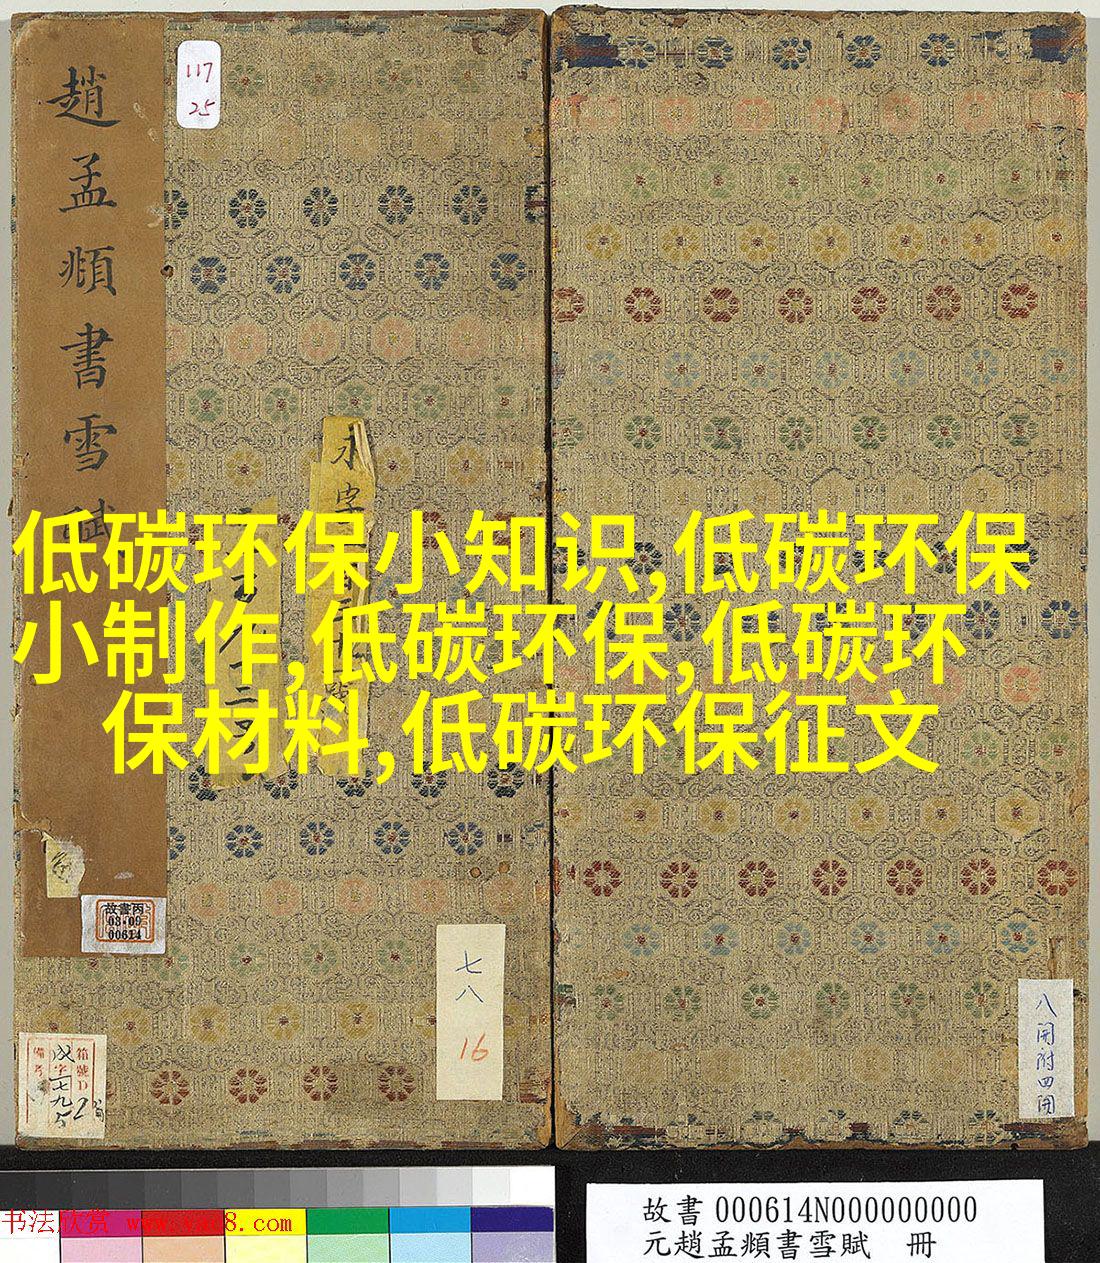 趙孟頫書雪賦
117
25
永字
低碳环保小知识,低碳环保
小制作,低碳环保,低碳环
保材料,低碳环保征文
故書丙
03-09
00614
七八
16
箱號D
備考
八開附四開
书法欣赏 www.yac8.com
故書000614N000000000
元趙孟頫書雪賦 冊